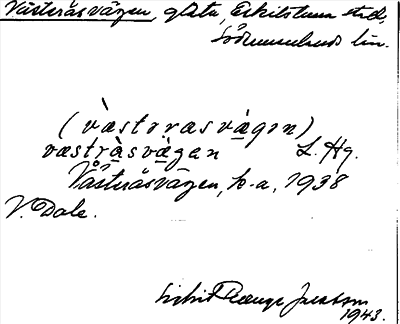 Västeråsvägen, gata, Eskilstuna stad,
Södermanlands län.
(västərasvägən)
væstràsvægan L. Hg.
Västeråsvägen, k.a, 1938
V. Dale.
1943.